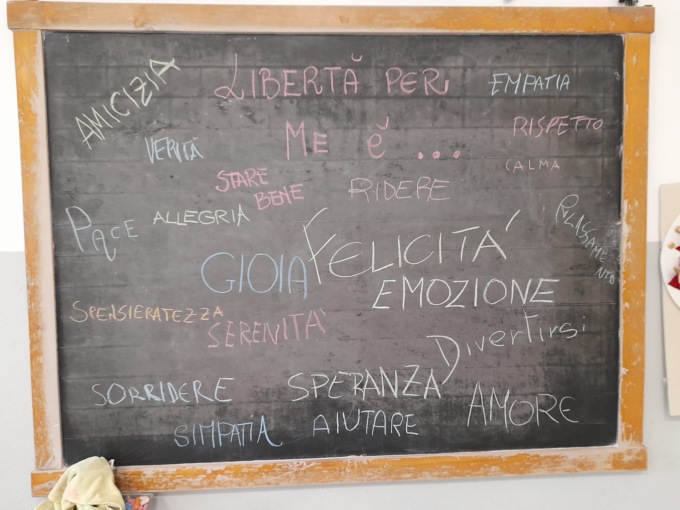 AMICIZIA
LIBERTÀ PER
EMPATIA
ME È ...
RISPETTO
VERITÀ
CALMA
STARE
BENE
RIDERE
PACE
ALLEGRIA
RILASSAME
NTO
FELICITA'
GIOIA
EMOZIONE
SPENSIERATEZZA
SERENITA'
Divertirsi
SORRIDERE
SPERANZA
AMORE
SIMPATIA
AIUTARE